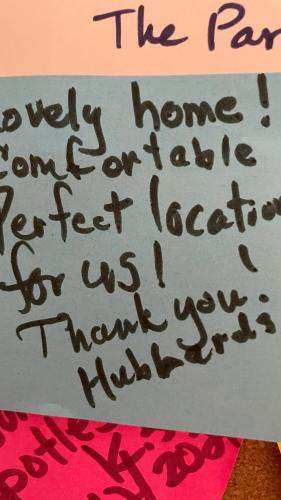 The Par
Lovely home!
Comfortable
Perfect location
for us!
Thank you!
Hubbards
potles
200